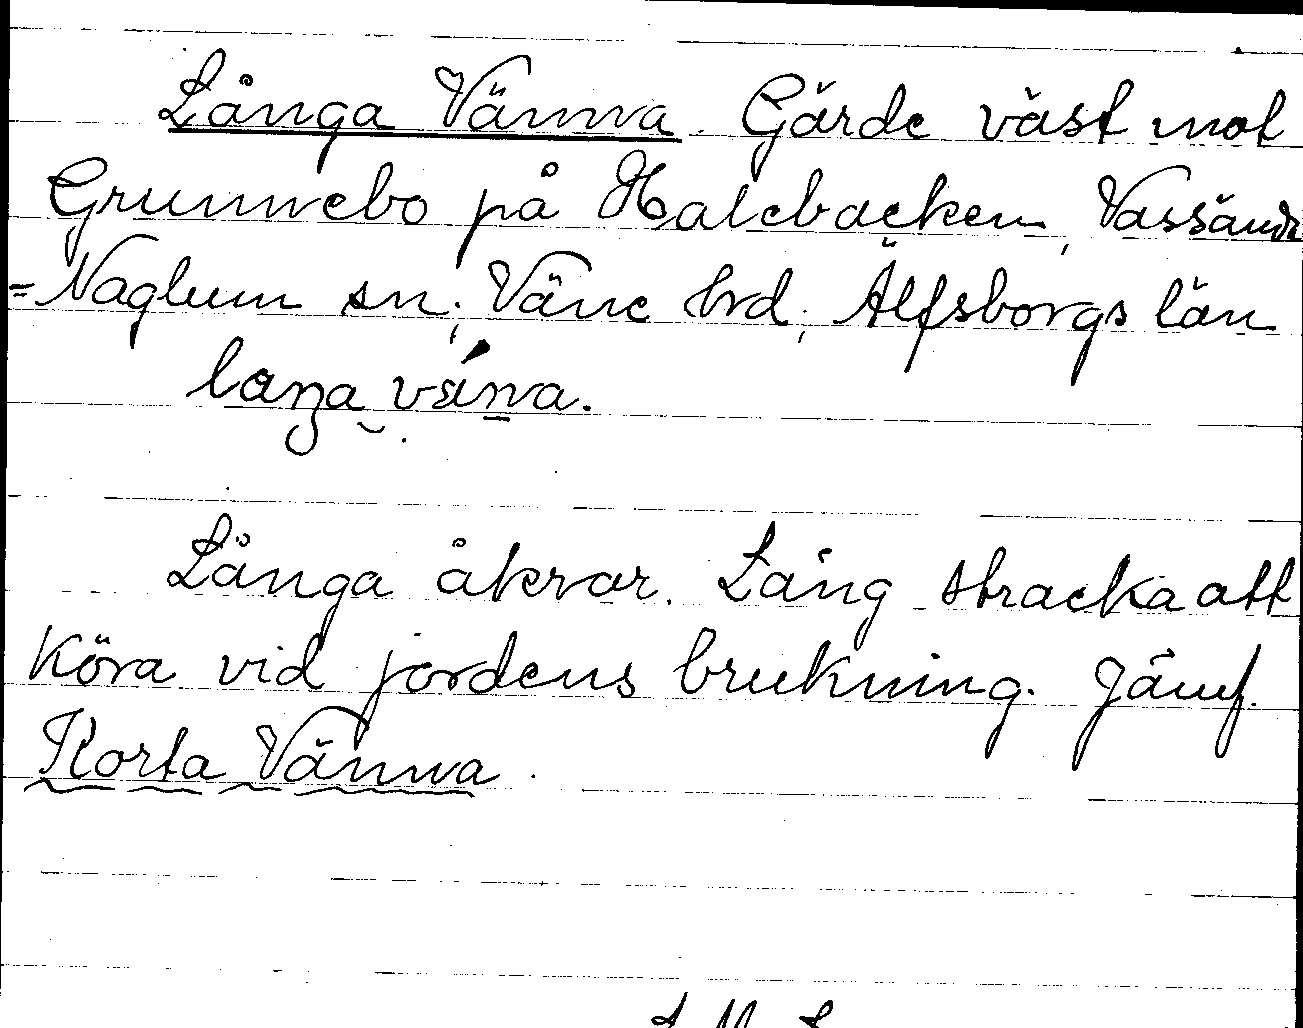 Långa Vänna. Gärde väst mot
Grunnebo på Halebacken, Vassända
=Naglum sn, Väne hrd, Älfsborgs län
Långa åkrar. Lång sträcka att
köra vid jordens brukning. Jämf.
Korta Vänna.